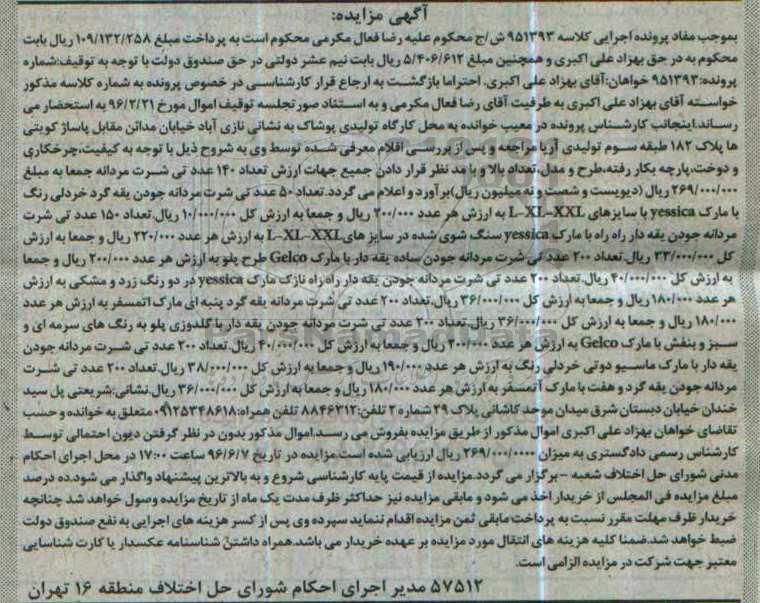 آگهی مزایده:
بموجب مفاد پرونده اجرایی کلاسه ۹۵۱۳۹۳ ش/ج محکوم علیه رضا فعال مکرمی محکوم است به پرداخت مبلغ ۱۰۹/۱۳۲/۲۵۸ ریال بابت
محکوم به در حق بهزاد علی اکبری و همچنین مبلغ ۵/۴۰۶/۶۱۲ ریال بابت نیم عشر دولتی در حق صندوق دولت با توجه به توقیف:شماره
پرونده:۹۵۱۳۹۳ خواهان:آقای بهزاد علی اکبری. احتراما بازگشت به ارجاع قرار کارشناسی در خصوص پرونده به شماره کلاسه مذکور
خواسته آقای بهزاد علی اکبری به طرفیت آقای رضا فعال مکرمی و به استناد صورتجلسه توقیف اموال مورخ ۹۶/۲/۲۱ به استحضار می
رساند.اینجانب کارشناس پرونده در معیب خوانده به محل کارگاه تولیدی پوشاک به نشانی نازی آباد خیابان مدائن مقابل پاساژ کویتی
ها پلاک ۱۸۲ طبقه سوم تولیدی آریا مراجعه و پس از بررسی اقلام معرفی شده توسط وی به شروح ذیل با توجه به کیفیت،چرخکاری
و دوخت،پارچه بکار رفته،طرح و مدل،تعداد بالا و با مد نظر قرار دادن جمیع جهات ارزش تعداد ۱۴۰ عدد تی شرت مردانه جمعا به مبلغ
۲۶۹/۰۰۰/۰۰۰ ریال (دیویست و شصت و نه میلیون ریال)برآورد و اعلام می گردد.تعداد ۵۰ عدد تی شرت مردانه جودن یقه گرد خردلی رنگ
با مارک yessica با سایزهای L-XL-XXL به ارزش هر عدد ۲۰۰/۰۰۰ ریال و جمعا به ارزش کل ۱۰/۰۰۰/۰۰۰ ریال.تعداد ۱۵۰ عدد تی شرت
مردانه جودن یقه دار راه راه با مارک yessica سنگ شوی شده در سایز های L-XL-XXL به ارزش هر عدد ۲۲۰/۰۰۰ ریال و جمعا به ارزش
کل ۳۳/۰۰۰/۰۰۰ ریال.تعداد ۲۰۰ عدد تی شرت مردانه جودن ساده یقه دار با مارک Gelco طرح پلو به ارزش هر عدد ۲۰۰/۰۰۰ ریال و جمعا
به ارزش کل ۴۰/۰۰۰/۰۰۰ ریال.تعداد ۲۰۰ عدد تی شرت مردانه جودن یقه دار راه راه نازک مارک yessica در دو رنگ زرد و مشکی به ارزش
هر عدد ۱۸۰/۰۰۰ ریال و جمعا به ارزش کل ۳۶/۰۰۰/۰۰۰ ریال.تعداد ۲۰۰ عدد تی شرت مردانه یقه گرد پنبه ای مارک اتمسفر به ارزش هر عدد
۱۸۰/۰۰۰ ریال و جمعا به ارزش کل ۳۶/۰۰۰/۰۰۰ ریال.تعداد ۲۰۰ عدد تی شرت مردانه جودن یقه دار با گلدوزی پلو به رنگ های سرمه ای و
سبز و بنفش با مارک Gelco به ارزش هر عدد ۲۰۰/۰۰۰ ریال و جمعا به ارزش کل ۴۰/۰۰۰/۰۰۰ ریال.تعداد ۲۰۰ عدد تی شرت مردانه جودن
یقه دار با مارک ماسیو دوتی خردلی رنگ به ارزش هر عدد ۱۹۰/۰۰۰ ریال و جمعا به ارزش کل ۳۸/۰۰۰/۰۰۰ ریال.تعداد ۲۰۰ عدد تی شرت
مردانه جودن یقه گرد و هفت با مارک آتمسفر به ارزش هر عدد ۱۸۰/۰۰۰ ریال و جمعا به ارزش کل ۳۶/۰۰۰/۰۰۰ ریال.نشانی:شریعتی پل سید
خندان خیابان دبستان شرق میدان موحد کاشانی پلاک ۲۹ شماره ۲ تلفن:۸۸۴۶۲۱۲ تلفن همراه:۰۹۱۲۵۳۴۸۶۱۸ متعلق به خوانده و حسب
تقاضای خواهان بهزاد علی اکبری اموال مذکور از طریق مزایده بفروش می رسد.اموال مذکور بدون در نظر گرفتن دیون احتمالی توسط
کارشناس رسمی دادگستری به میزان ۲۶۹/۰۰۰/۰۰۰۰ ریال ارزیابی شده است مزایده در تاریخ ۹۶/۶/۷ ساعت ۱۷:۰۰ در محل اجرای احکام
مدنی شورای حل اختلاف شعبه – برگزار می گردد.مزایده از قیمت پایه کارشناسی شروع و به بالاترین پیشنهاد واگذار می شود.ده درصد
مبلغ مزایده فی المجلس از خریدار اخذ می شود و مابقی مزایده نیز حداکثر ظرف مدت یک ماه از تاریخ مزایده وصول خواهد شد چنانچه
خریدار ظرف مهلت مقرر نسبت به پرداخت مابقی ثمن مزایده اقدام ننماید سپرده وی پس از کسر هزینه های اجرایی به نفع صندوق دولت
ضبط خواهد شد.ضمنا کلیه هزینه های انتقال مورد مزایده بر عهده خریدار می باشد.همراه داشتن شناسنامه عکسدار یا کارت شناسایی
معتبر جهت شرکت در مزایده الزامی است.
۵۷۵۱۲ مدیر اجرای احکام شورای حل اختلاف منطقه ۱۶ تهران